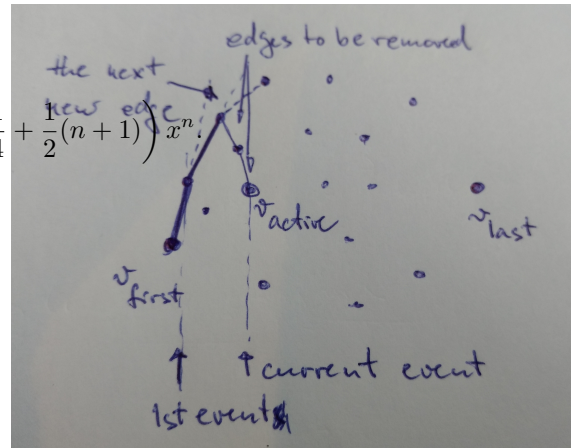 edges to be removed
the next
new edge
4 + \frac{1}{2}(n + 1)) x^n.
v_active
v_last
v_first
current event
1st event